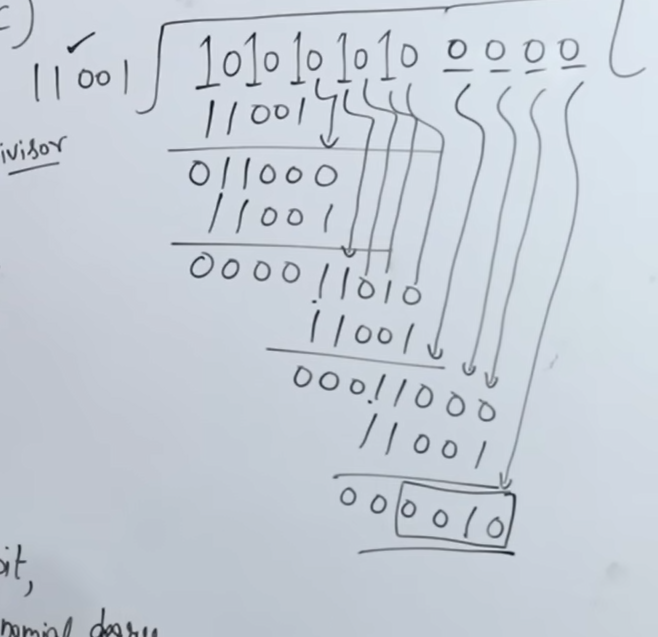 c)
11001 1010101010 0000
11001
ivisor
011000
11001
000011010
11001
00011000
11001
000010
bit,
nomial degree